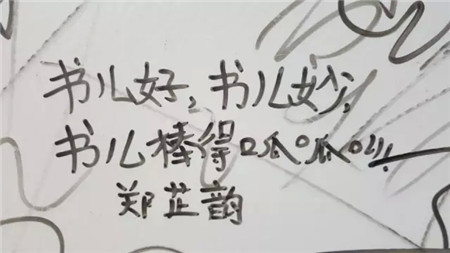 书儿好，书儿妙，
书儿棒得呱呱叫！
郑芷韵